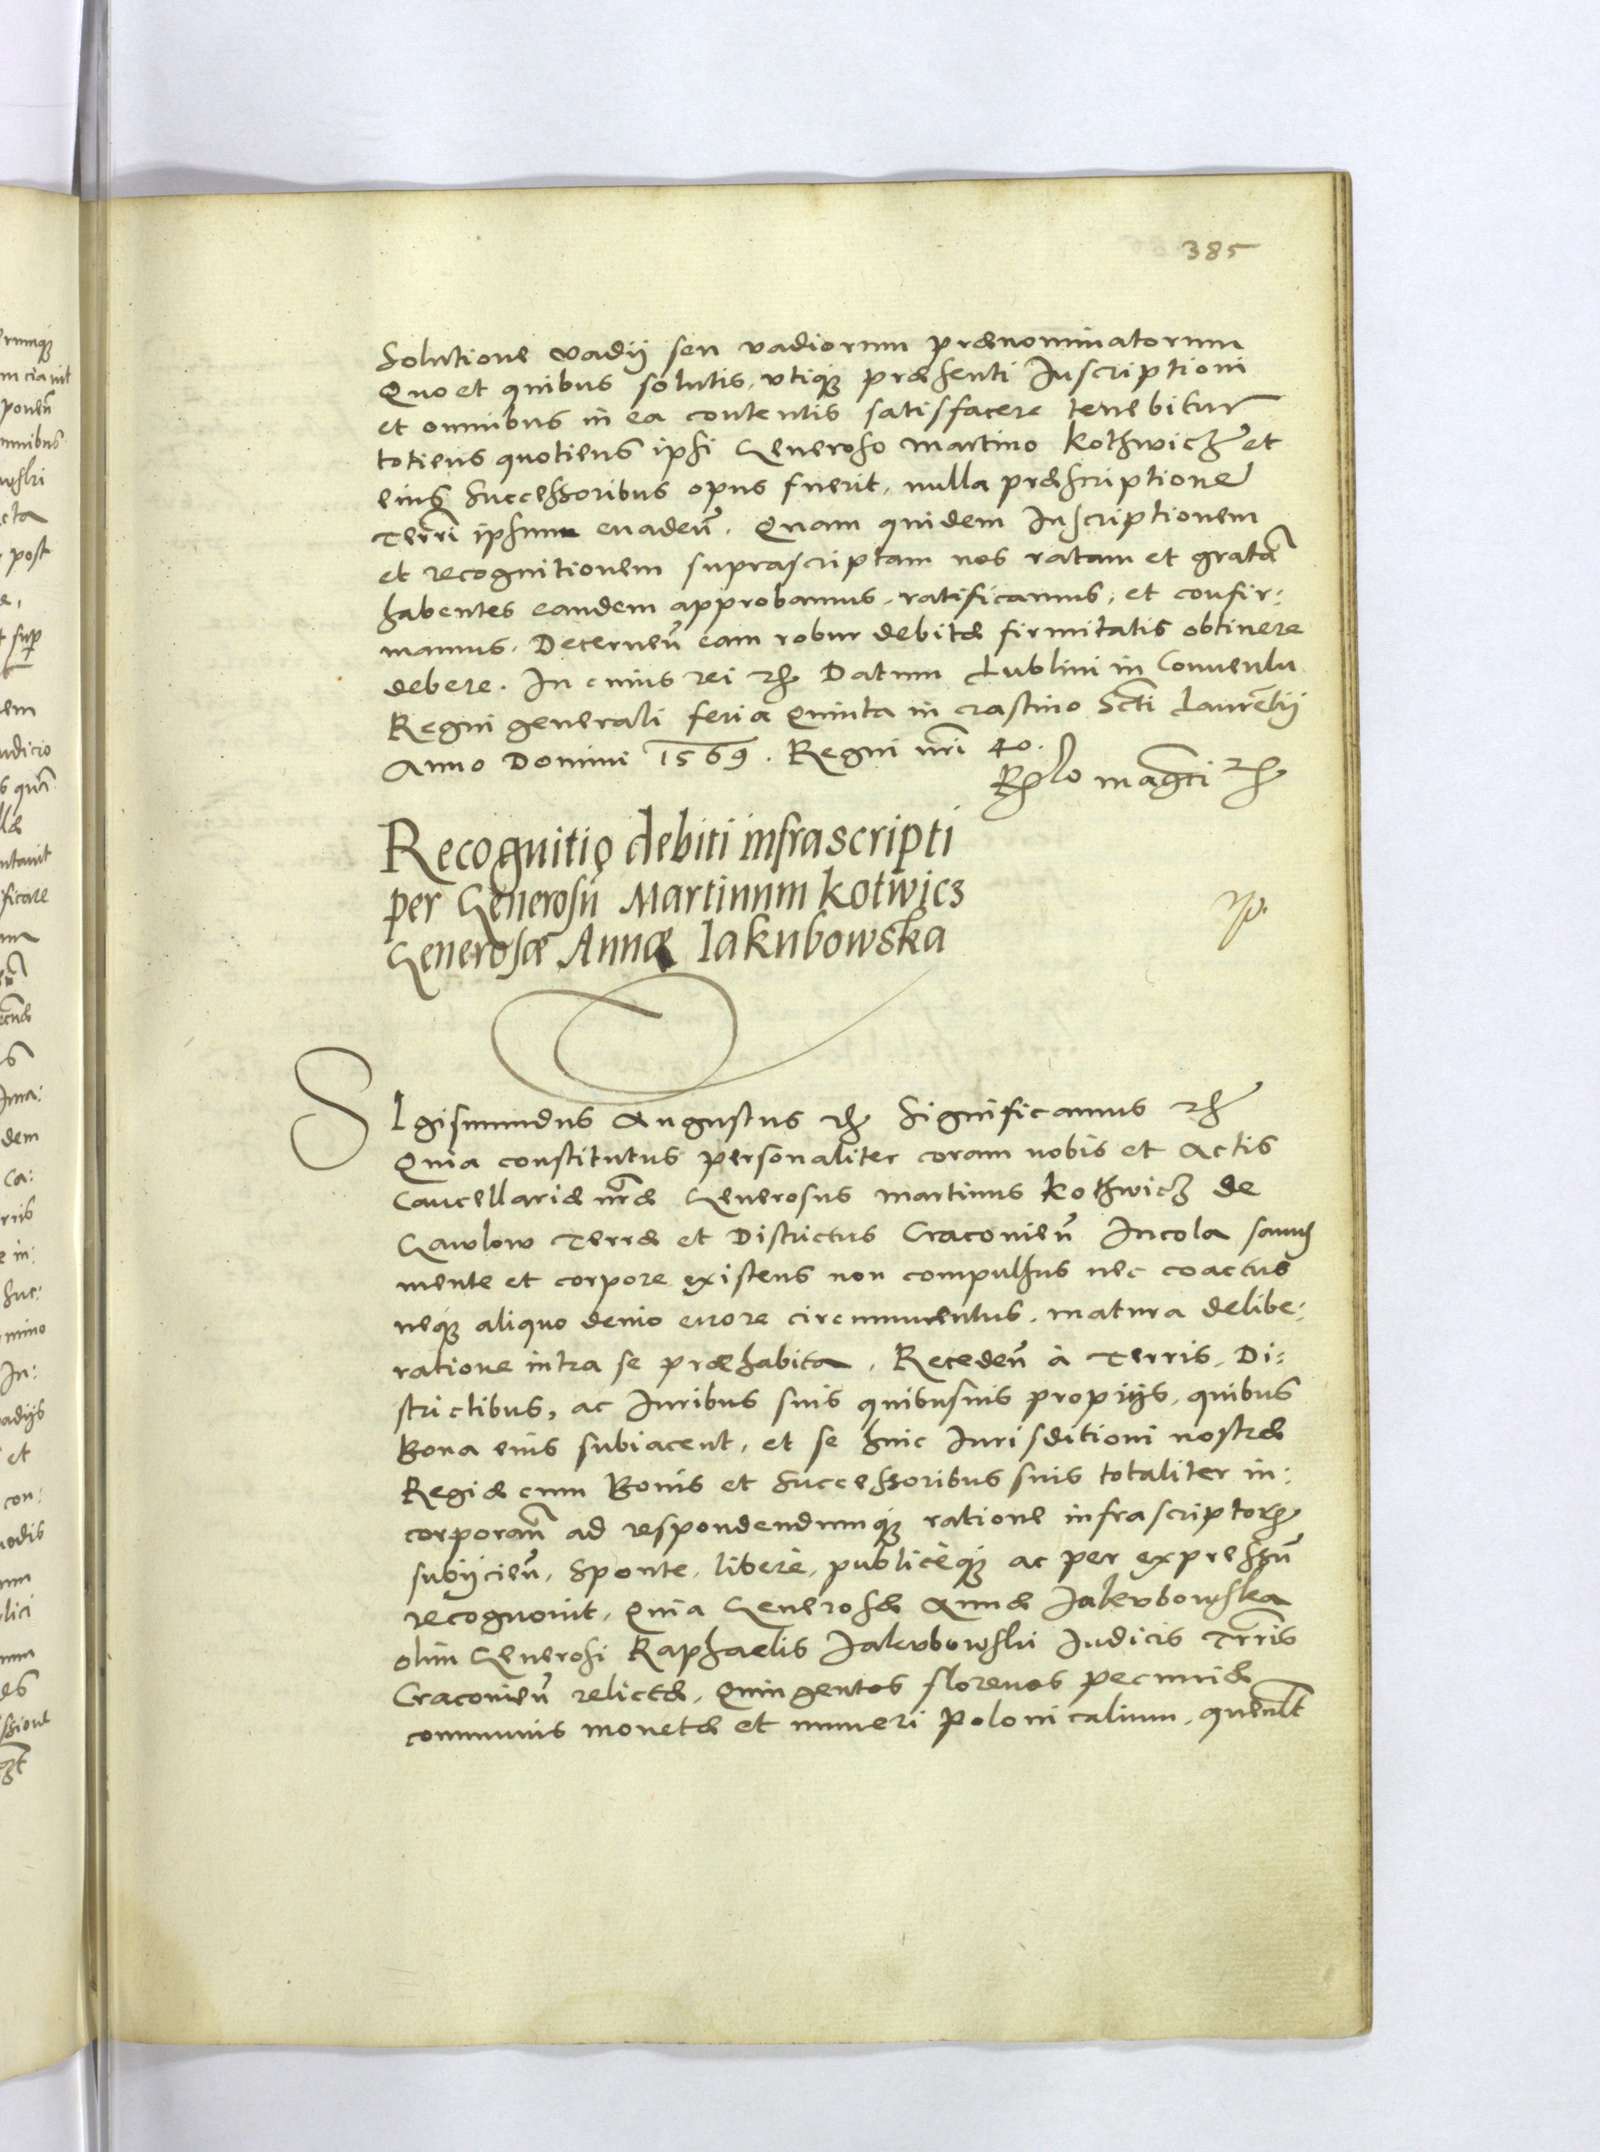 385
Solutione vadÿ seu vadiorum prænominatorum
Quo et quibus solutis, vtiqꝫ præsenti Inscriptioni
et omnibus in ea contentis satisfacere tenebitur
totiens quotiens ipsi Generoso Martino Kothwicz et
eius Successoribus opus fuerit, nulla præscriptione
Terrī ipsum euadeñ. Quam quidem Inscriptionem
et recognitionem suprascriptam nos ratam et gratā
habentes eandem approbamus, ratificamus, et confir:
mamus. Decerneñ eam robur debitæ firmitatis obtinere
debere. In cuius rei ꝛc̄ Datum Lublini in Conuentu
Regni generali feria Quinta in crastino Scti Laurētÿ
Anno Domini 1569. Regni nr̄i 40.
Rlo magci ꝛc̄
Recognitio debiti infrascripti
per Generosū Martinum Kotwicz
Generosæ Annæ Iakubowska
SIgismundus Augustus ꝛc̄ Significamus ꝛc̄
Quia constitutus personaliter coram nobis et Actis
Cancellariæ nr̄æ Generosus Martinus Kothwicz de
Gawlow Terræ et Districtus Cracovieñ Incola sanus
mente et corpore existens non compulsus nec coactus
neqꝫ aliquo deuio errore circumuentus, matura delibe:
ratione intra se præhabita, Recedeñ à Terris, Di:
strictibus, ac Iuribus suis quibusuis propÿs, quibus
Bona eius subiacent, et se huic Iurisditioni nostræ
Regiæ cum Bonis et Successoribus suis totaliter in:
corporañ ad respondendumqꝫ ratione infrascriptorꝫ
subÿcieñ, Sponte, liberè, publicèqꝫ ac per expressū
recognouit, Quia Generosæ Annæ Jakvbowska
olim Generosi Raphaelis Jakvbowski Iudicis Terrīs
Cracovieñ relictæ, Quingentos florenos pecuniæ
communis monetæ et numeri polonicalium, quemlt